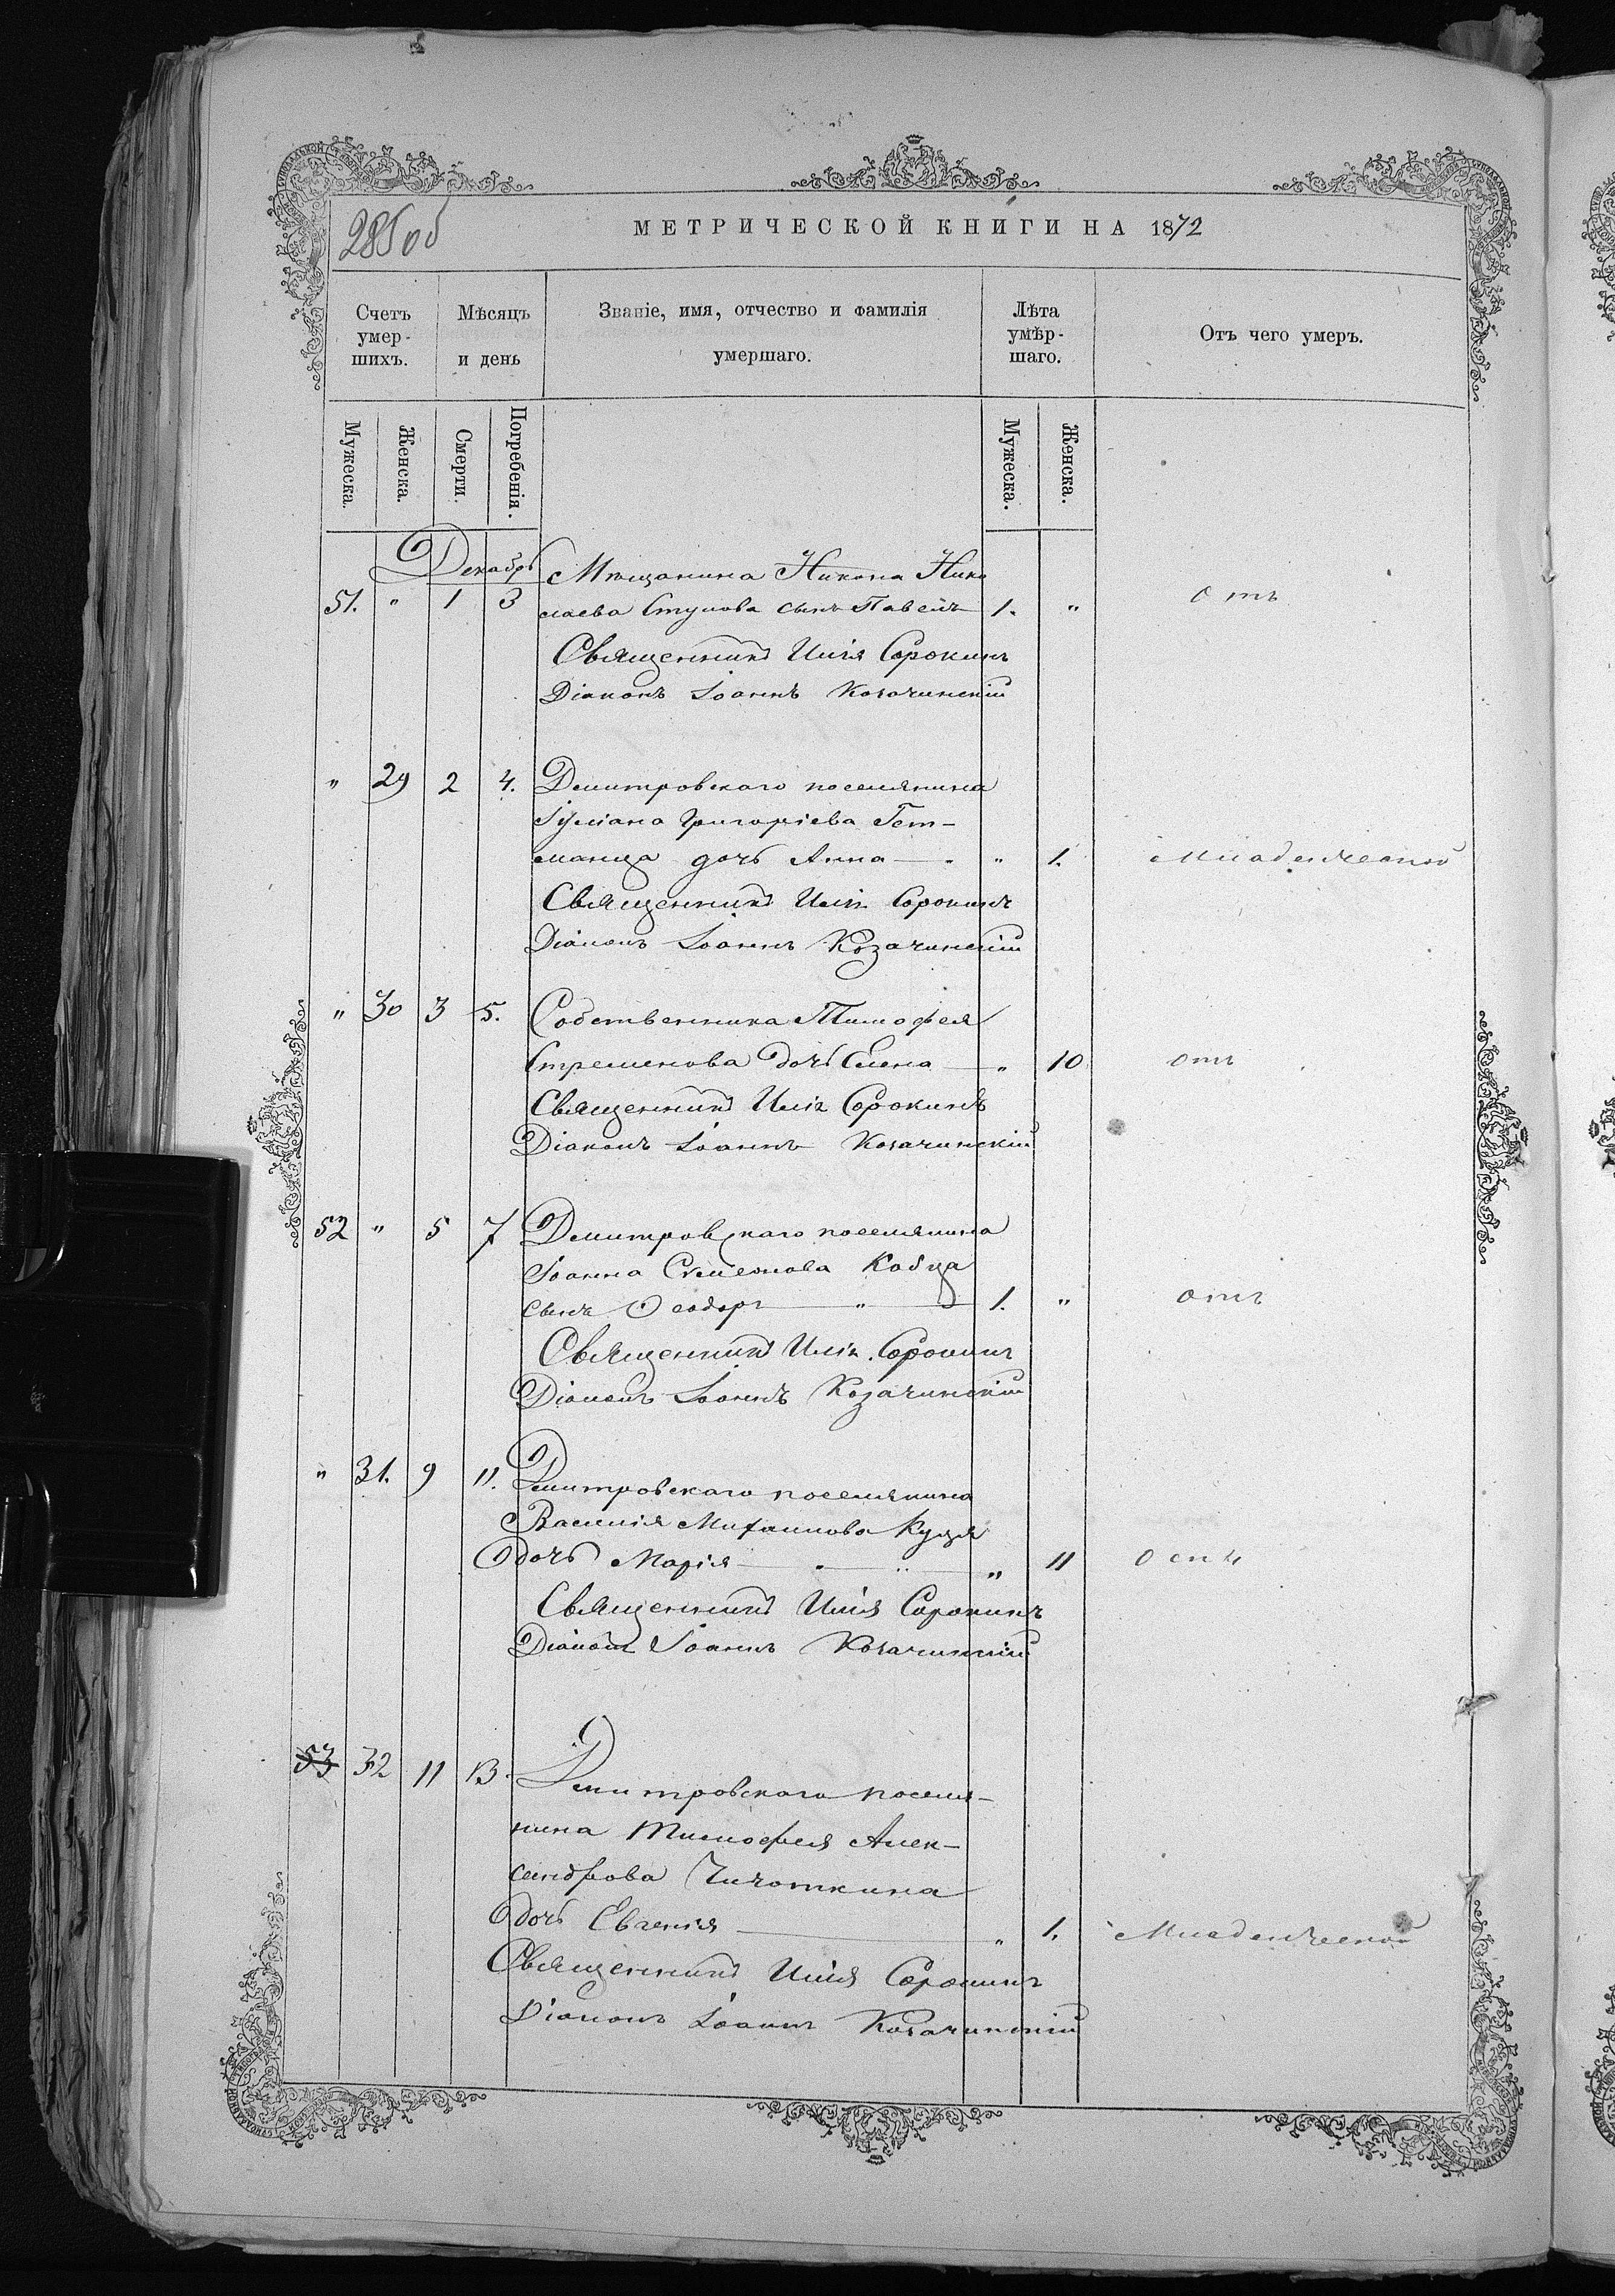 285 об
МЕТРИЧЕСКОЙ КНИГИ НА 1872
Счетъ умерших. Мѣсяцъ и день Званіе, имя, отчество и фамилія умершаго. Лѣта умѣршаго. Отъ чего умеръ.
Мужеска. Женска. Смерти. Погребенія. Мужеска. Женска.
Декабрь
Мѣщанина Никона Нико
51. " 1 3 лаева Ступова сынъ Павелъ 1. " отъ
Священникъ Илія Сорокинъ
Діаконъ Іоаннъ Козачинскій
" 29 2 4. Дмитровскаго поселянина
Іуліана Григоріева Гет-
манца дочь Анна " 1. Младенческой
Священникъ Илія Сорокинъ
Діаконъ Іоаннъ Козачинскій
" 30 3 5. Собственника Тимофея
Стременова дочь Елена " 10 отъ
Священникъ Илія Сорокинъ
Діаконъ Іоаннъ Козачинскій
52 " 5 7 Дмитровскаго поселянина
Іоанна Семенова Кобца
сынъ Феодоръ " 1. " отъ
Священникъ Илія Сорокинъ
Діаконъ Іоаннъ Козачинскій
" 31. 9 11. Дмитровскаго поселянина
Василія Михаилова Куця
дочь Марія " 11
Священникъ Илія Сорокинъ
Діаконъ Іоаннъ Козачинскій
53 32 11 13. Дмитровскаго поселя-
нина Тимофея Алек-
сандрова Чичоткина
дочь Евгенія " 1. Младенческой
Священникъ Илія Сорокинъ
Діаконъ Іоаннъ Козачинскій